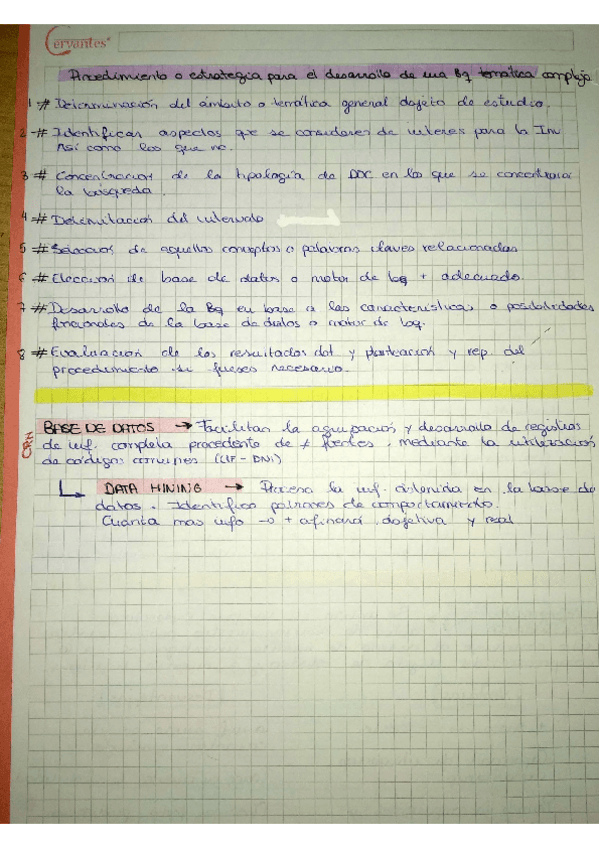 Cervantes
Procedimiento o estrategia para el desarrollo de una Bq temática compleja
1 # Determinación del ámbito o temática general dojeto de estudio.
2 # Identificar aspectos que se consideren de interes para la Inv
Así como los que no.
3 # Concentracion de la tipología de DOC en los que se concentrara
la búsqueda.
4 # Delimitacion del intervalo
5 # de aquellos conceptos o palabras claves relacionadas
6 # Eleccion de base de datos o motor de bq + adecuado.
7 # Desarrollo de la Bq en base a las características o posibilidades
de la base de datos o motor de bq.
8 # Evaluacion de los resultados dot y y rep. del
procedimiento si fuese necesario.
BASE DE DATOS → Facilitan la agrupación y desarrollo de registros
de inf. completa procedente de ≠ fuentes, mediante la utilización
de códigos comunes (CIF - DNI)
DATA MINING → Procesa la inf. obtenida en la base de
datos. Identifica patrones de comportamiento.
Cuanta mas info → + afinara, dojetiva y real